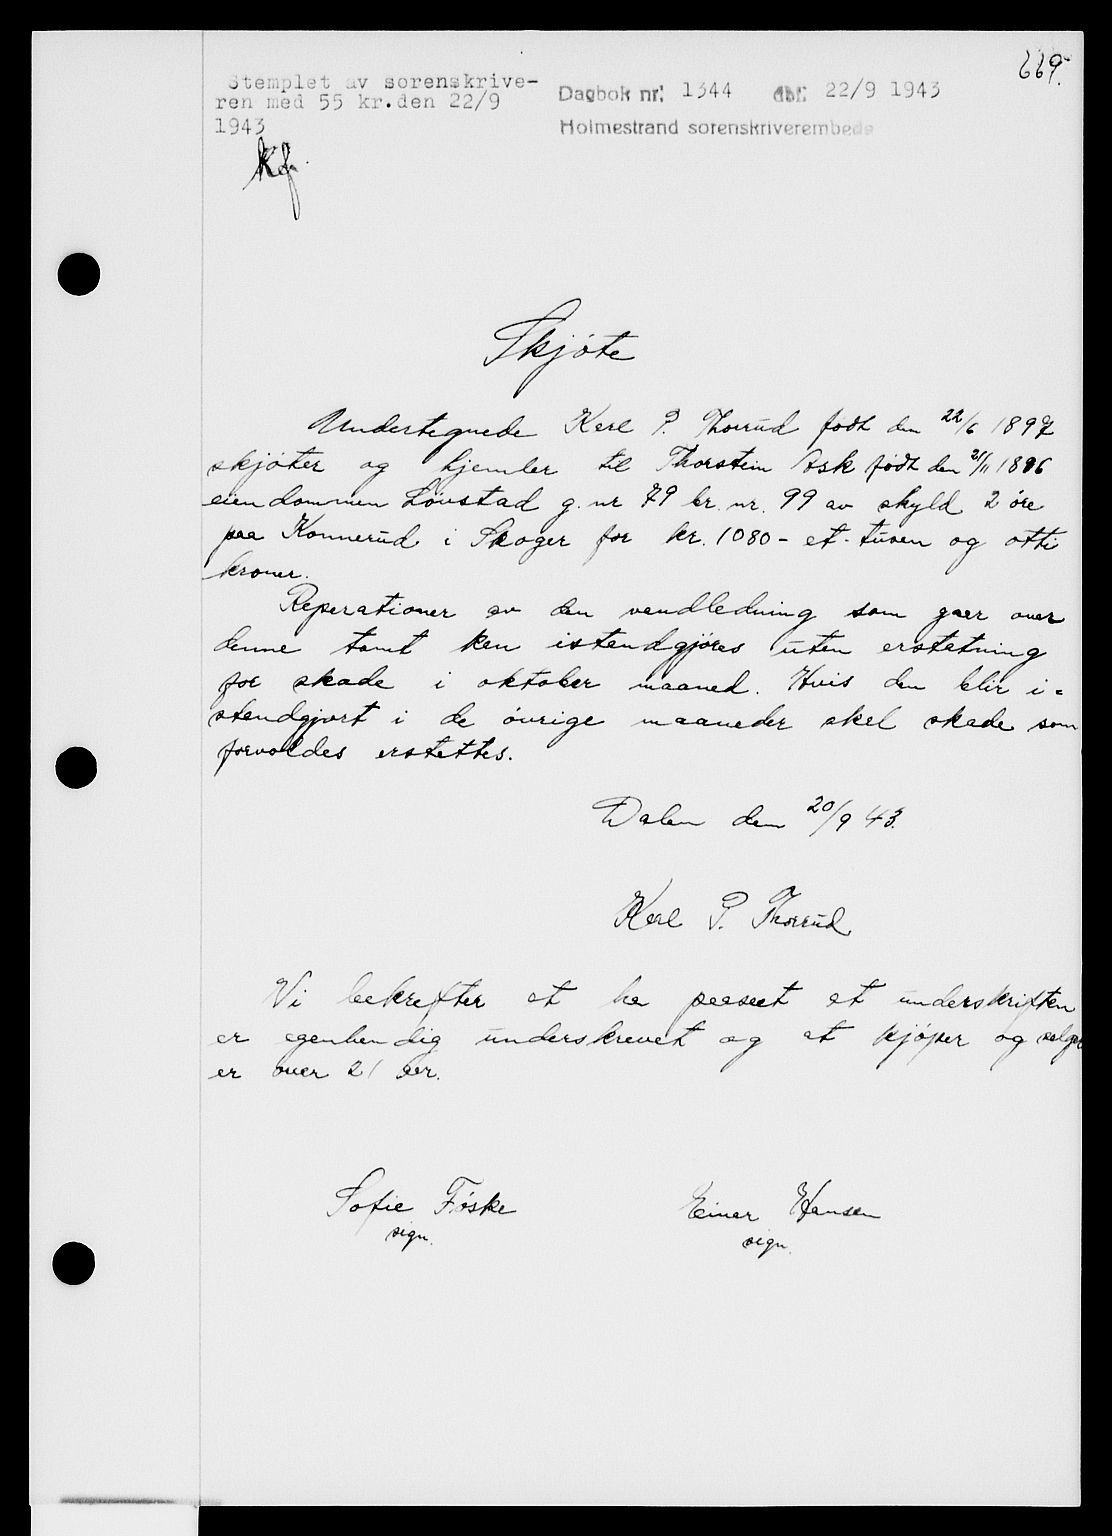 669.
Stemplet av sorenskrive-
ren med 55 kr.den 22/9
1943
Dagbok nr. 1344 dbf. 22/9 1943
Holmestrand sorenskriverembede
Skjøte
Undertegnede Karl P. Thorrud født den 22/6 1897
skjøter og hjemler til Thorstein Ask født den 2/11 1896
eiendommen Løvstad g. nr 79 br. nr. 99 av skyld 2 öre
paa Konnerud i Skoger for kr. 1080 - et-tusen og otti
kroner.
Reperationer av den vandledning som gaar over
denne tomt kan istandgjøres uten erstatning
for skade i oktober maaned. Hvis den blir i=
standgjort i de øvrige maaneder skal skade som
forvoldes erstattes.
Dalen den 20/9 43.
Karl P. Thorrud
Vi bekrefter at ha paaseet at underskriften
er egenhendig underskrevet og at kjøper og selger
er over 21 aar.
Sofie Føske
sign.
Einar Hansen
sign.